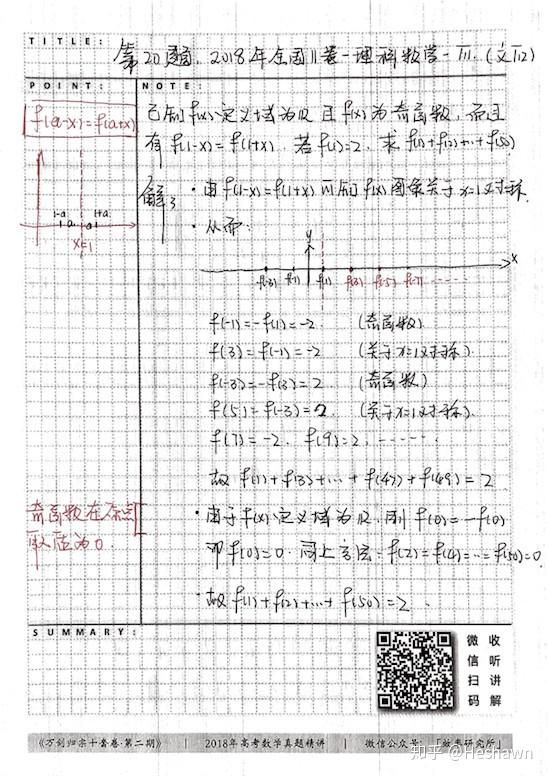 TITLE:
第20题. 2018年全国II卷-理科数学-T11.(文T12)
POINT:
NOTE:
f(a-x)=f(a+x)
1-a
1+a
a
a
x=1
已知f(x)定义域为R 且f(x)为奇函数,而且
有f(1-x)=f(1+x). 若f(1)=2. 求f(1)+f(2)+…+f(50)
解:
·由f(1-x)=f(1+x)可知f(x)图象关于x=1对称.
·从而:
y
x
f(-3) f(-1) f(1) f(3) f(5) f(7) ……
f(-1)=-f(1)=-2 (奇函数)
f(3)=f(-1)=-2 (关于x=1对称)
f(-3)=-f(3)=2 (奇函数)
f(5)=f(-3)=2 (关于x=1对称)
f(7)=-2. f(9)=2, ……
故 f(1)+f(3)+…+f(47)+f(49)=2
奇函数在原点
取值为0.
·由于f(x)定义域为R, 则f(0)=-f(0)
即f(0)=0. 同上方法. f(2)=f(4)=…=f(50)=0
·故f(1)+f(2)+…+f(50)=2.
SUMMARY:
微信扫码
收听讲解
《万剑归宗十套卷·第二期》 | 2018年高考数学真题精讲 | 微信公众号: 「效率研究所」
知乎 @Heshawn